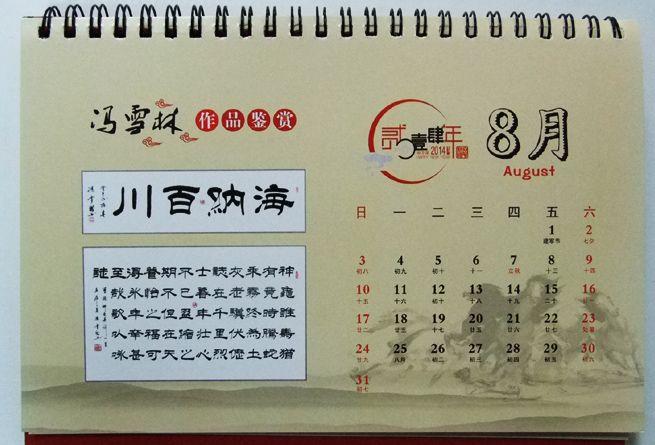 冯雪林 作品鉴赏
海納百川
神龜雖壽猶
有竟時騰蛇
乘霧終為土
灰老驥伏櫪
誌在千里烈
士暮年壯心
不已盈縮之
期不但在天
養怡之福可
得永年幸甚
至哉歌以詠
誌
贰壹肆年
2014
HAPPY NEW YEAR
8月
August
日 一 二 三 四 五 六
1 2
建军节 七夕
3 4 5 6 7 8 9
初八 初九 初十 十一 立秋 十三 十四
10 11 12 13 14 15 16
十五 十六 十七 十八 十九 二十 廿一
17 18 19 20 21 22 23
廿二 廿三 廿四 廿五 廿六 廿七 处暑
24 25 26 27 28 29 30
廿九 八月 初二 初三 初四 初五 初六
31
初七